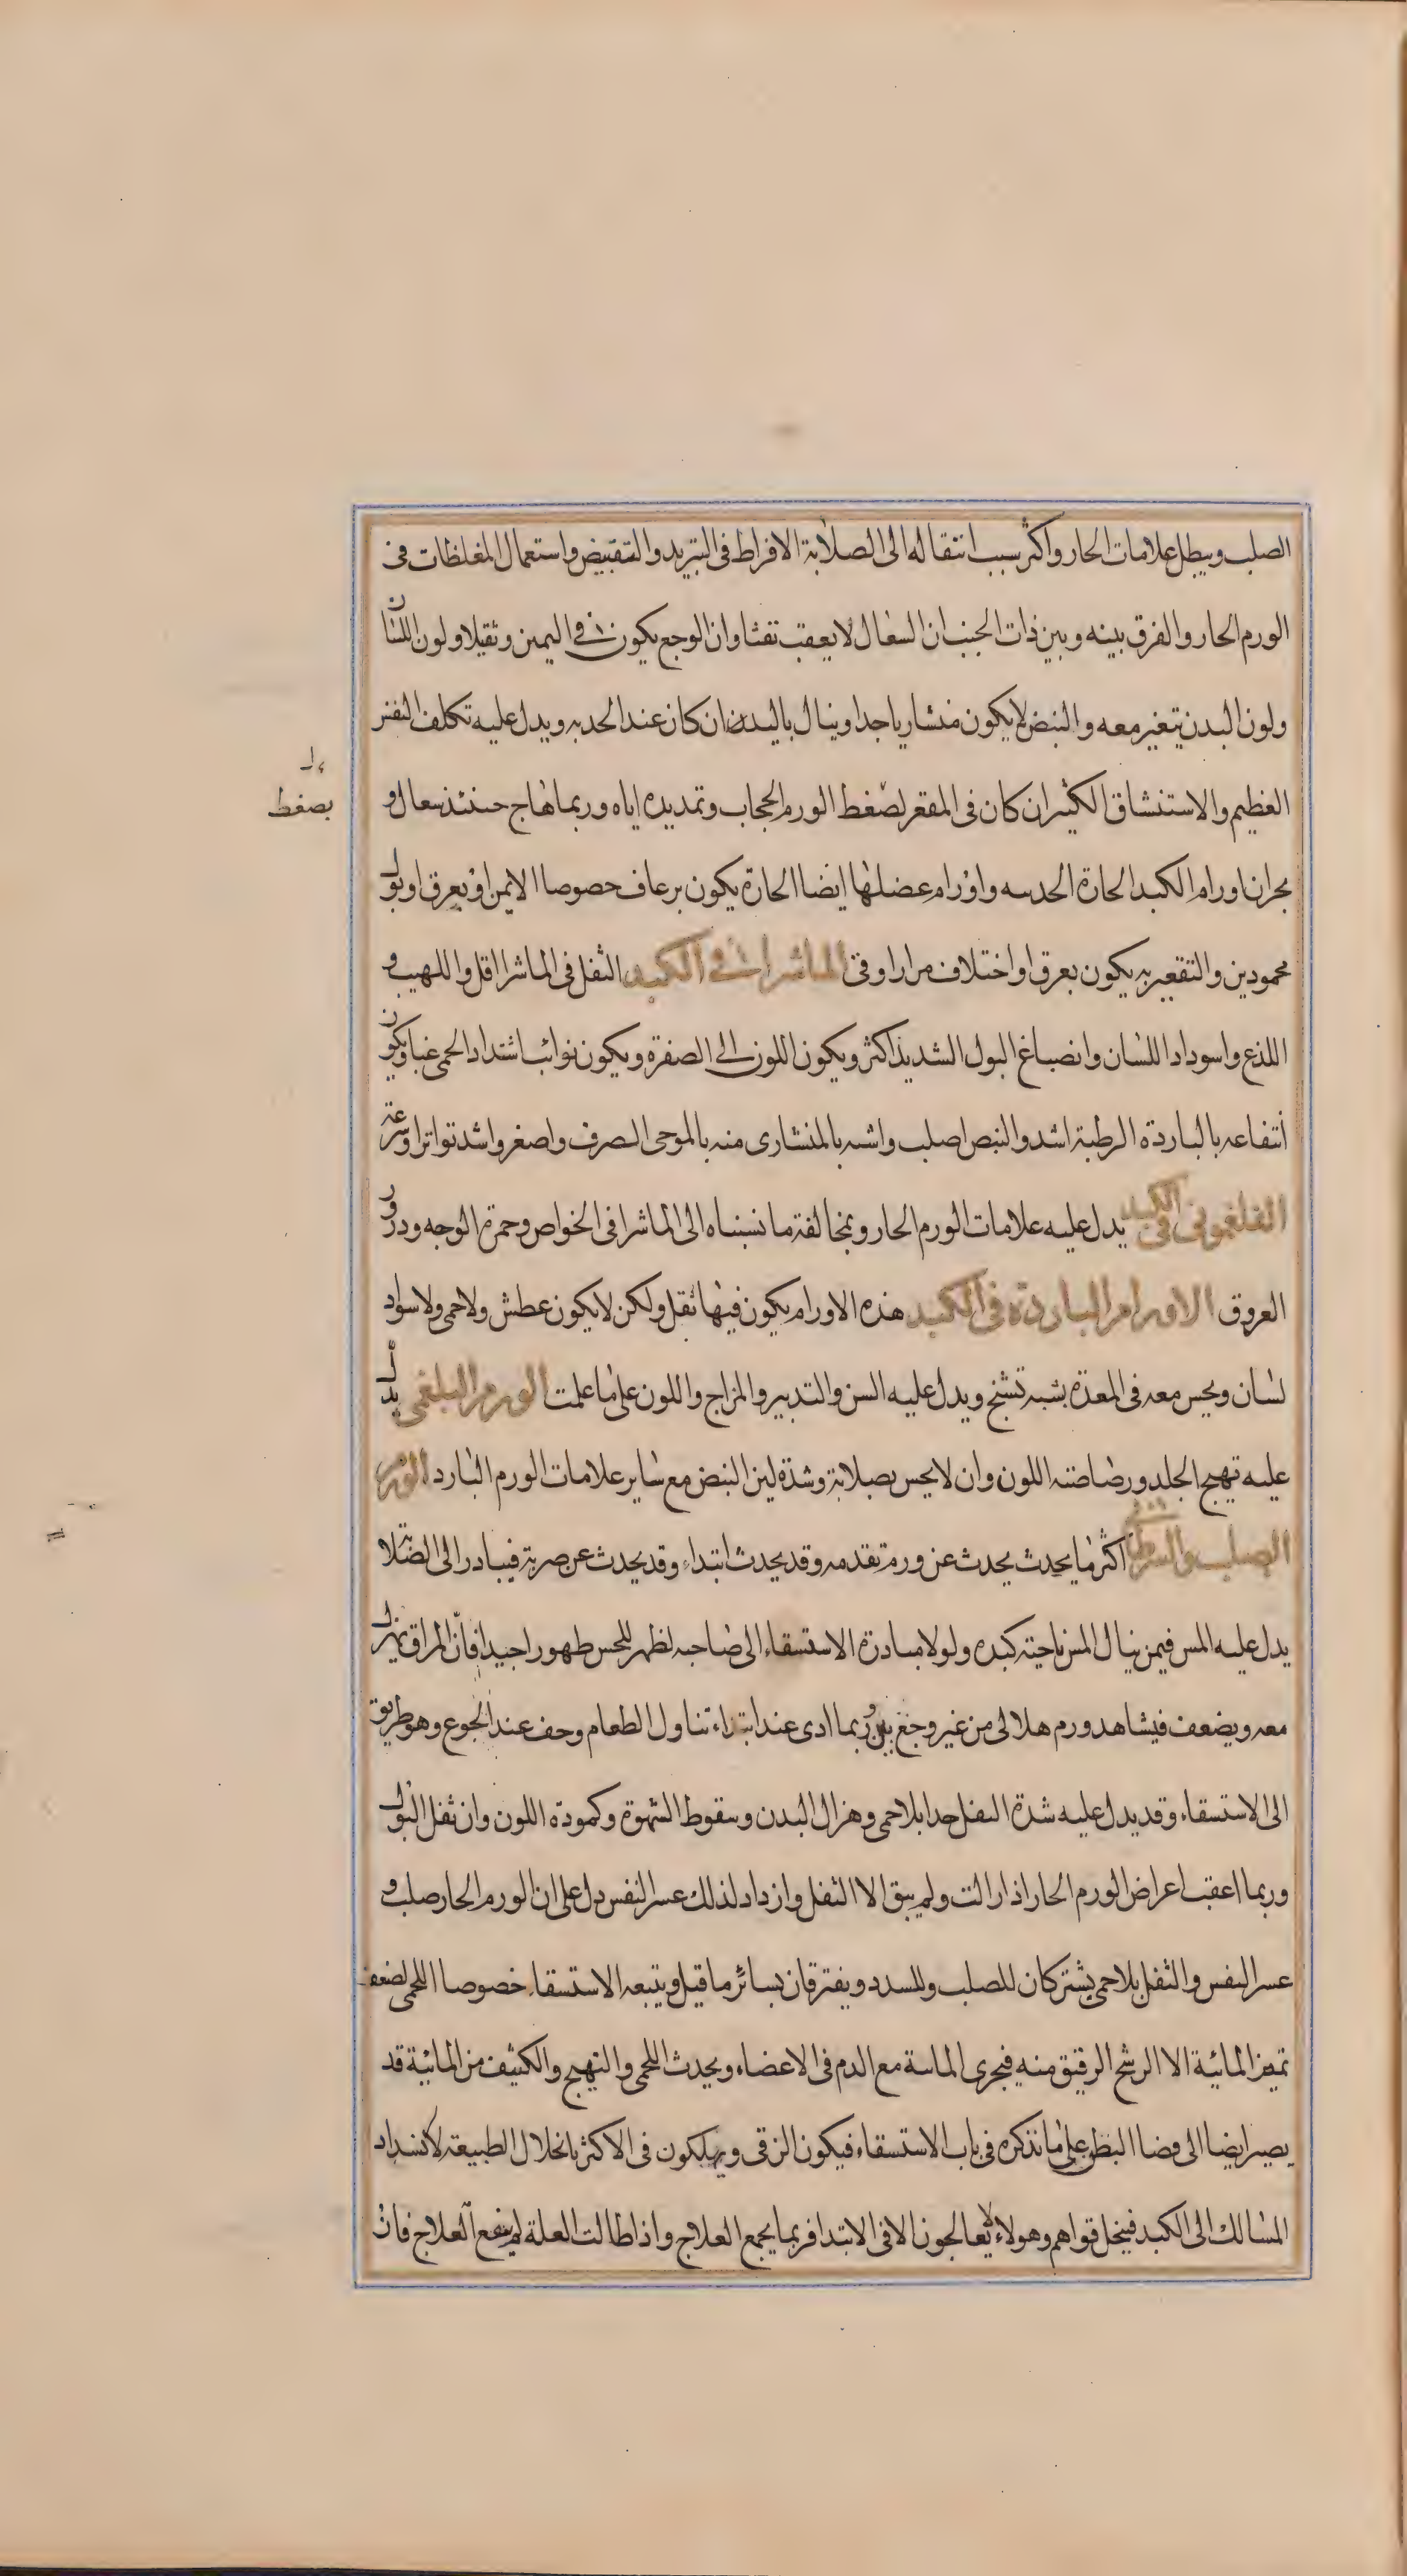 الصلب ويبطل علامات الحار واكثر سبب انتقاله الى الصلابة الافراط فى التبريد والتقبيض واستعمال المغلظات فى
الورم الحار والفرق بينه وبين ذات الجنب ان السعال لا يعقب نفثا وان الوجع يكون فى اليمين وثقيلا ولون اللسان
ولون البدن يتغير معه والنبض لا يكون منشاريا جدا وينال باليد ان كان عند الحدبه ويدل عليه تكلف النفس
العظيم والاستنشاق الكثير ان كان فى المقعر لضغط الورم الحجاب وتمديده اياه وربما هاج حينئذ سعال و
بضغط
بحران اورام الكبد الحارة الحدبيه واورام عضلها ايضا الحارة يكون برعاف خصوصا الايمن او بعرق او بول
محمودين والتقعيريه يكون بعرق او اختلاف مرار او قى الماشرا فى الكبد الثقل فى الماشرا اقل واللهيب و
اللذع واسوداد اللسان وانصباغ البول الشديد اكثر ويكون اللون الى الصفرة ويكون نوائب اشتداد الحمى غبا ويكون
انتفاعه بالباردة الرطبة اشد والنبض اصلب واشبه بالمنشارى منه بالموجى الصرف واصغر واشد تواترا وسرعة
الفلغمونى فى الكبد يدل عليه علامات الورم الحار وبمخالفة ما نسبناه الى الماشرا فى الخواص وحمرة الوجه ودرور
العروق الاورام الباردة فى الكبد هذه الاورام يكون فيها ثقل ولكن لا يكون عطش ولا حمى ولا سواد
لسان ويحس معه فى المعدة بشبه تشنج ويدل عليه السن والتدبير والمزاج واللون على ما علمت الورم البلغمى يدل
عليه تهيج الجلد ورصاصته اللون وان لا يحس بصلابة وشدة لين النبض مع ساير علامات الورم البارد الورم
الصلب والسرطان اكثر ما يحدث يحدث عن ورم تقدمه وقد يحدث ابتداء وقد يحدث عن ضربة فيبادر الى الصلا
يدل عليه المس فيمن ينال المس ناحيته كبده ولولا مبادرة الاستسقاء الى صاحبه لظهر للحس ظهورا جيدا فان المراق يهزل
معه ويضعف فيشاهد ورم هلالى من غير وجع وربما ادى عند ابتداء تناول الطعام وخف عند الجوع وهو طريق
الى الاستسقاء وقد يدل عليه شدة الثقل جدا بلا حمى وهزال البدن وسقوط الشهوة وكمودة اللون وان ثقل البول
وربما اعقب اعراض الورم الحار اذا زالت ولم يبق الا الثقل وازداد لذلك عسر النفس دل على ان الورم الحار صلب و
عسر النفس والثقل بلا حمى يشتركان للصلب وللسدد ويفترقان بسائر ما قيل ويتبعه الاستسقاء خصوصا اللحمى لضعف
تميز المائية الا الرشح الرقيق منه فيجرى المائية مع الدم فى الاعضاء ويحدث اللحمى والتهيج والكثيف من المائية قد
يصير ايضا الى فضا البطن على ما نذكره فى باب الاستسقاء فيكون الزقى ويهلكون فى الاكثر بانحلال الطبيعة لانسداد
المسالك الى الكبد فيخل قواهم وهولاء لا يعالجون الا فى الابتدا فربما نجع العلاج واذا طالت العلة لم ينفع العلاج فان